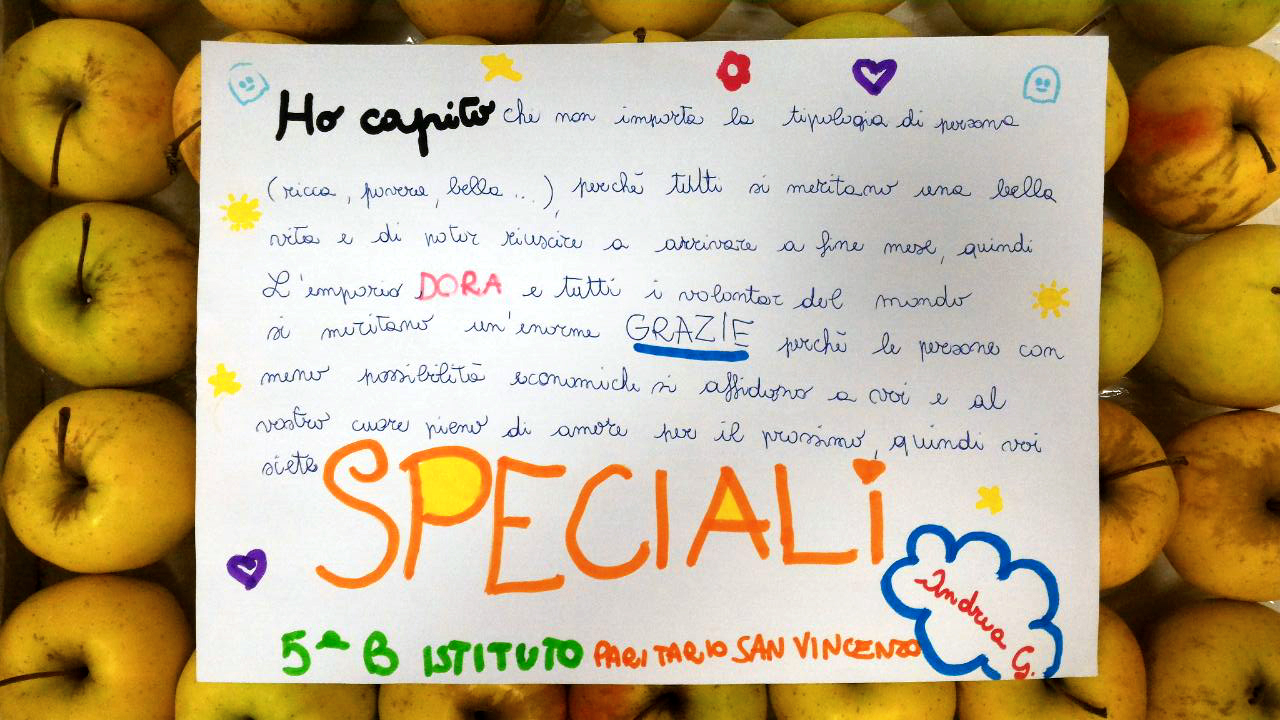 Ho capito che non importa la tipologia di persona
(ricca, povera, bella...), perchè tutti si meritano una bella
vita e di poter riuscire a arrivare a fine mese, quindi
L'emporio DORA e tutti i volontar del mondo
si meritano un'enorme GRAZIE perchè le persone con
meno possibilità economiche si affidono a voi e al
vostro cuore pieno di amore per il prossimo, quindi voi
siete SPECIALI
Andrea G.
5ᵃ B ISTITUTO PARITARIO SAN VINCENZO